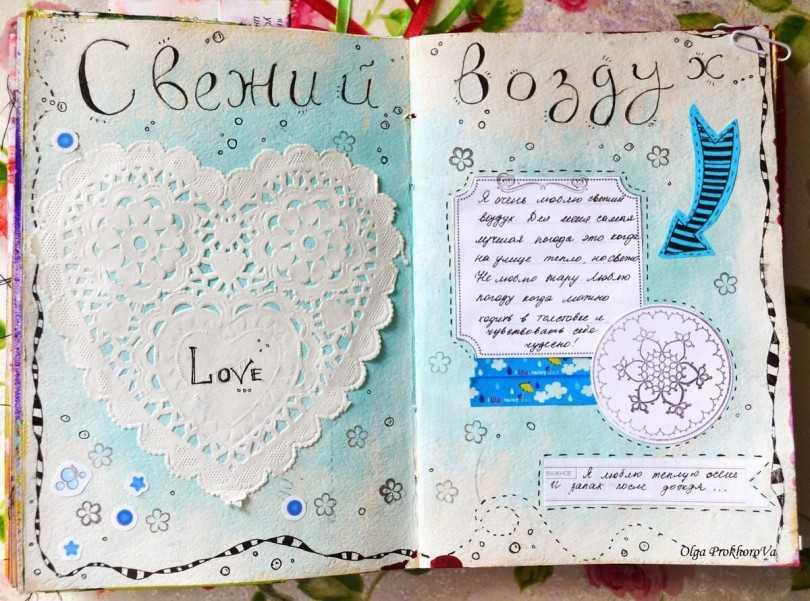 Свежий воздух
LOVE
Я очень люблю свежий
воздух. Для меня самая
лучшая погода это когда
на улице тепло, но свежо.
Не люблю жару. Люблю
погоду когда можно
ходить в толстовке и
чувствовать себя
чудесно!
ВАЖНОЕ Я люблю теплую осень
И запах после дождя ...
Olga ProkhoroVa